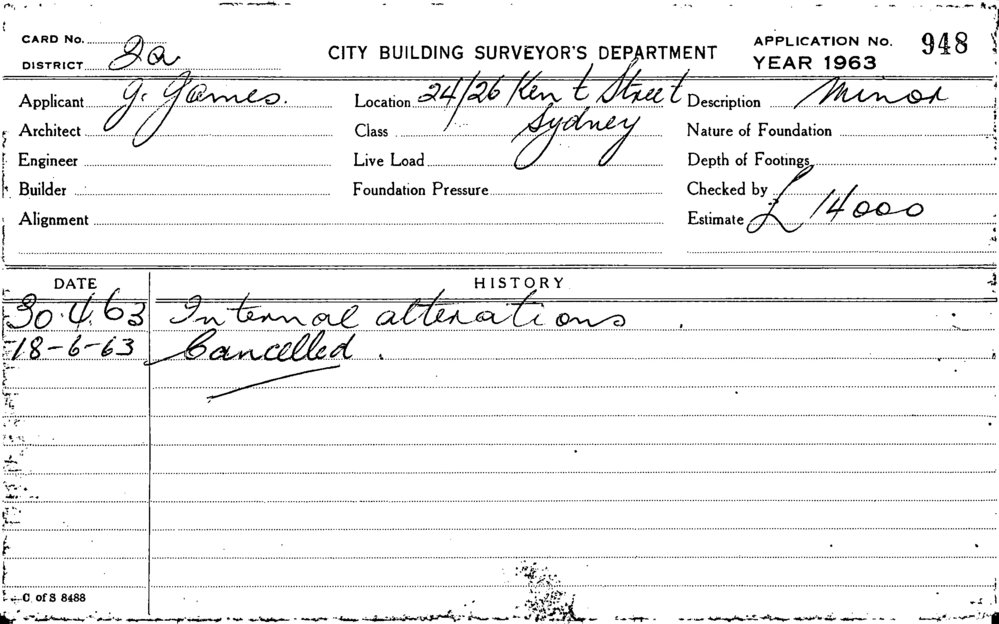 CARD No.
DISTRICT 2a
CITY BUILDING SURVEYOR'S DEPARTMENT
APPLICATION No. 948
YEAR 1963
Applicant G. James.
Location 24/26 Kent Street
Sydney
Description Minor
Architect
Class
Nature of Foundation
Engineer
Live Load
Depth of Footings
Builder
Foundation Pressure
Checked by
Alignment
Estimate £ 14000
DATE HISTORY
30.4.63 Internal alterations
18-6-63 Cancelled.
C. of S 8488